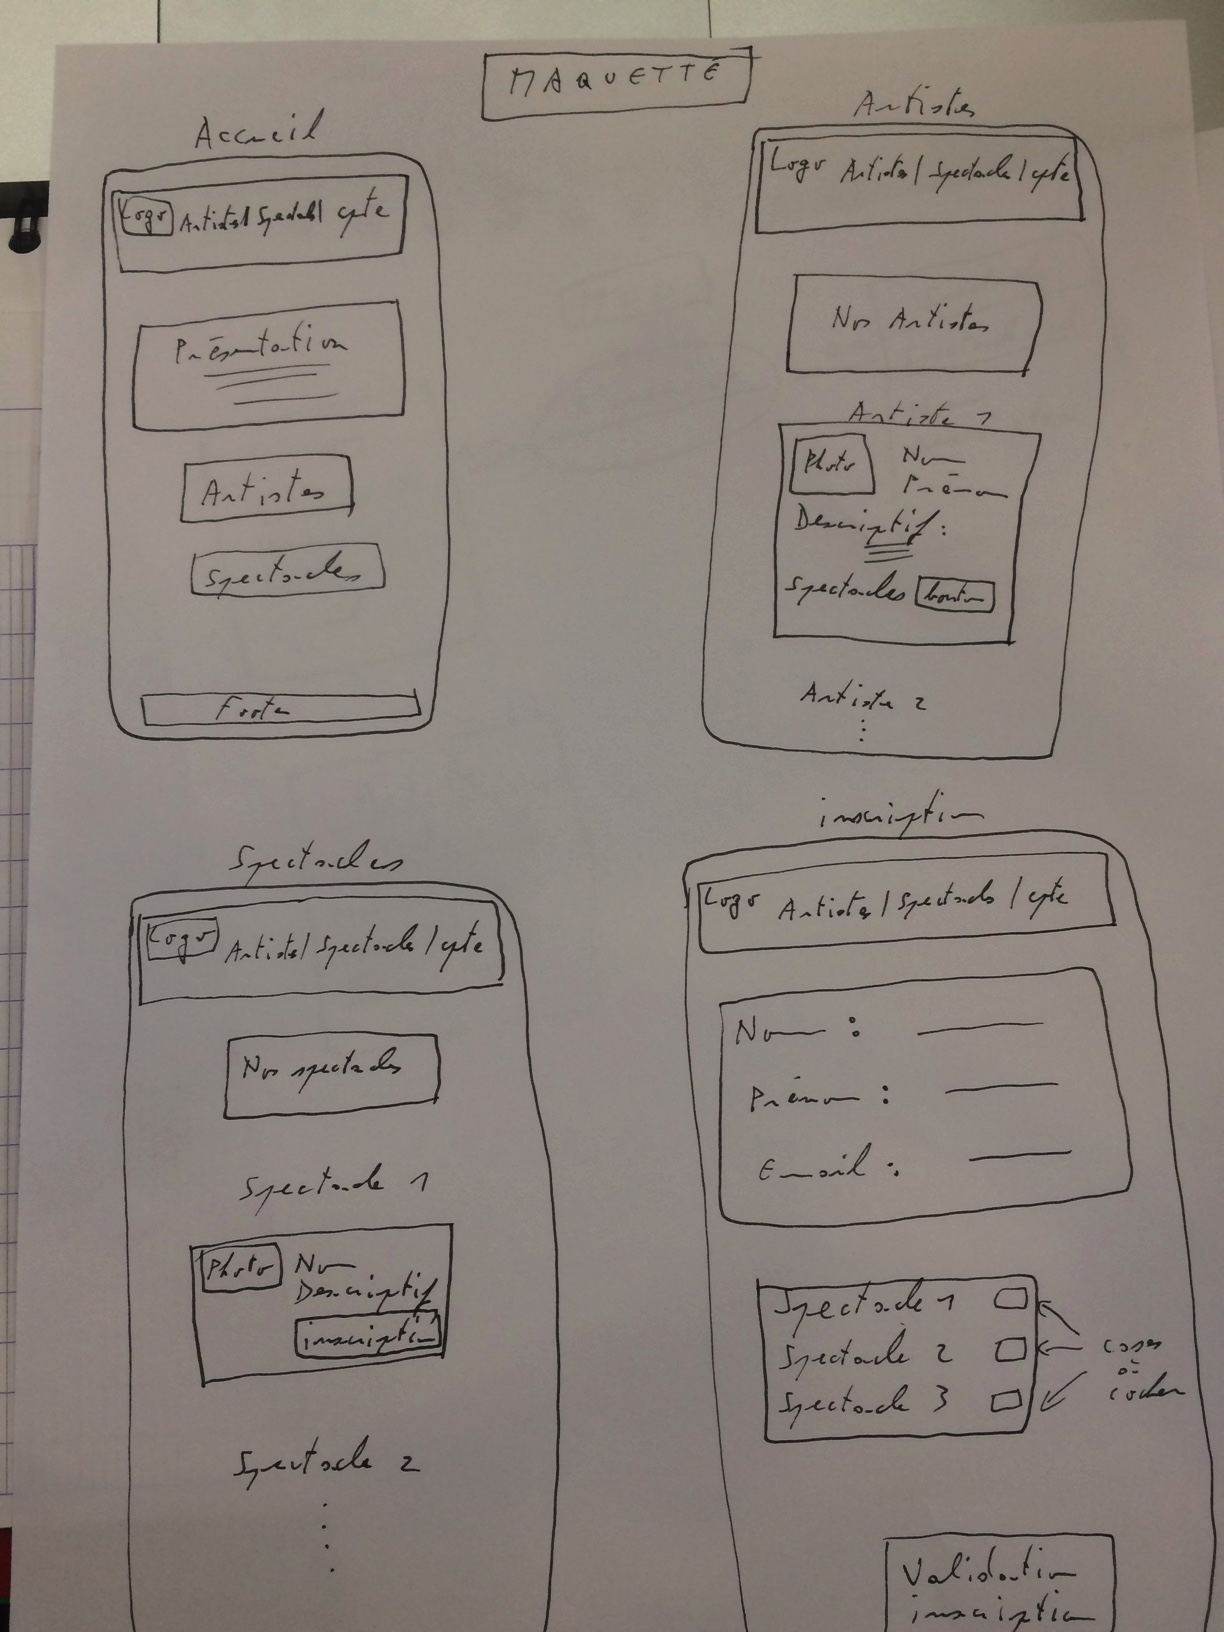 MAQUETTE
Accueil
Logo Artistes/Spectacles/cpte
Présentation
Artistes
Spectacles
Footer
Artistes
Logo Artistes/Spectacles/cpte
Nos Artistes
Artiste 1
Photo Nom
Prénom
Descriptif :
Spectacles bouton
Artiste 2
Spectacles
Logo Artistes/Spectacles/cpte
Nos spectacles
Spectacle 1
Photo Nom
Descriptif
inscription
Spectacle 2
inscription
Logo Artistes/Spectacles/cpte
Nom :
Prénom :
Email :
Spectacle 1
Spectacle 2
Spectacle 3
cases
à
cocher
Validation
inscription